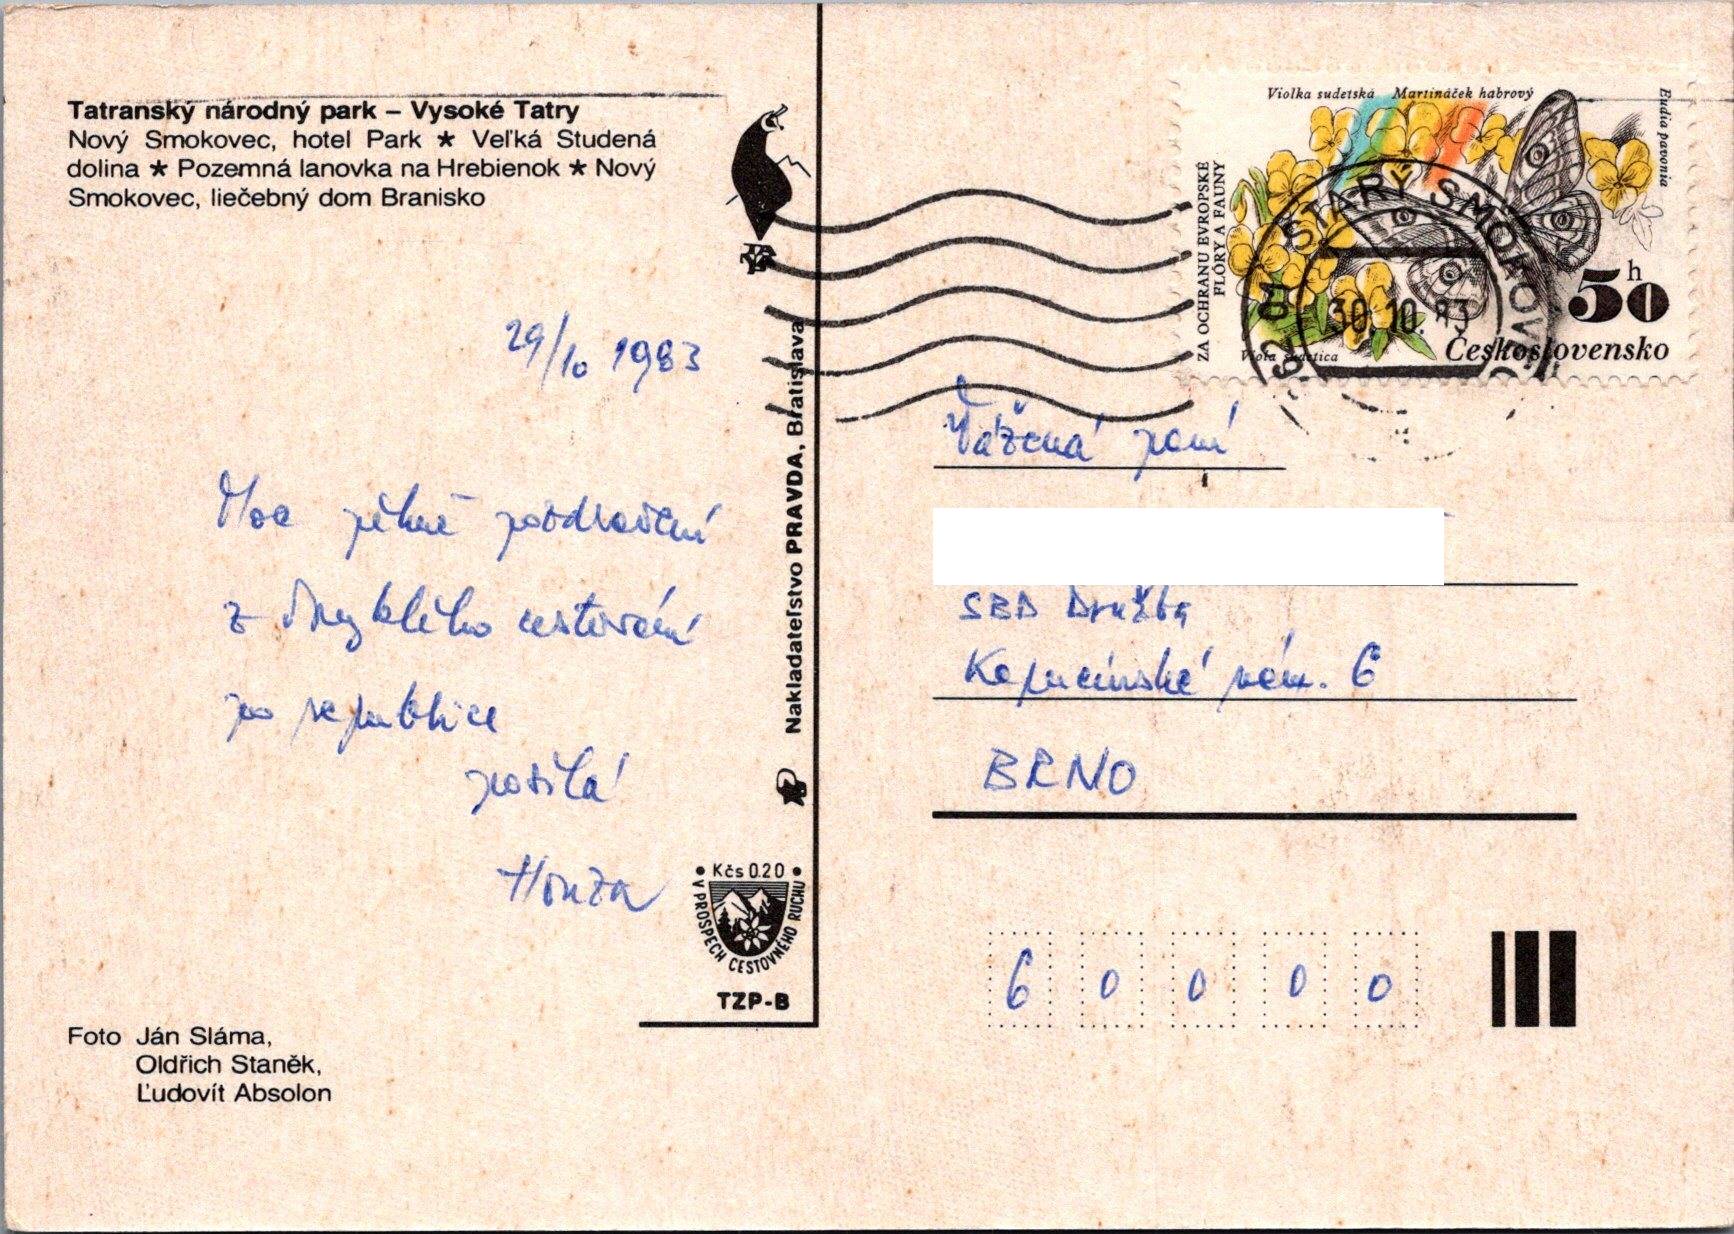 Tatranský národný park – Vysoké Tatry
Nový Smokovec, hotel Park ★ Veľká Studená
dolina ★ Pozemná lanovka na Hrebienok ★ Nový
Smokovec, liečebný dom Branisko
29/10 1983
Moc pěkné pozdravení
z obvyklého cestování
po republice
posílá
Honza
Foto Ján Sláma,
Oldřich Staněk,
Ľudovít Absolon
Nakladateľstvo PRAVDA, Bratislava
• Kčs 0.20 •
V PROSPECH CESTOVNÉHO RUCHU
TZP-B
Violka sudetská Martináček habrový
Eudia pavonia
ZA OCHRANU EVROPSKÉ
FLÓRY A FAUNY
Viola sudetica
50 h
Československo
STARÝ SMOKOVEC
30.10.83
Vážená paní
SBD Družba
Kapucínské nám. 6
BRNO
6 0 0 0 0